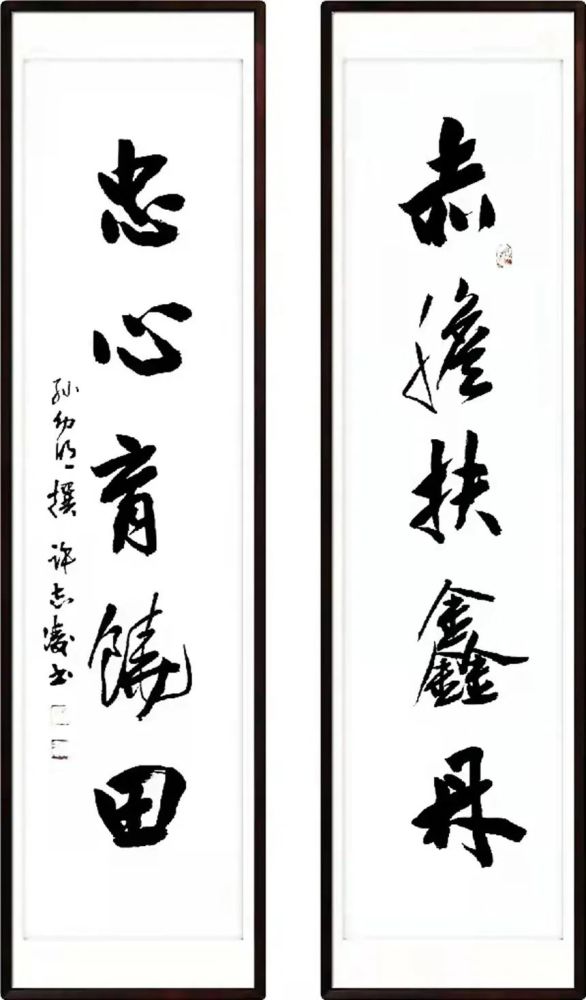 赤膽扶鑫丹
忠心育饒田
孙幼明撰 许志凌书